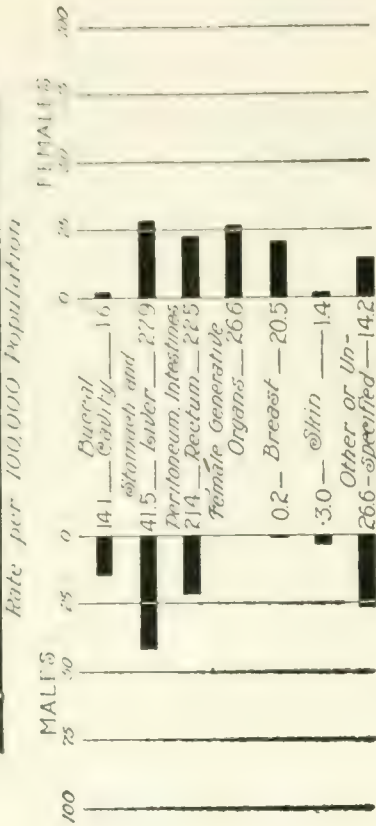 Rate per 100,000 Population
MALES
FEMALES
100 75 50 25 0
0 25 50 75 100
Buccal
14.1 Cavity 1.6
Stomach and
41.5 Liver 27.9
Peritoneum, Intestines
21.4 Rectum 22.5
Female Generative
Organs 26.6
0.2 — Breast — 20.5
3.0 — Skin — 1.4
Other or Un-
26.6 - Specified — 14.2